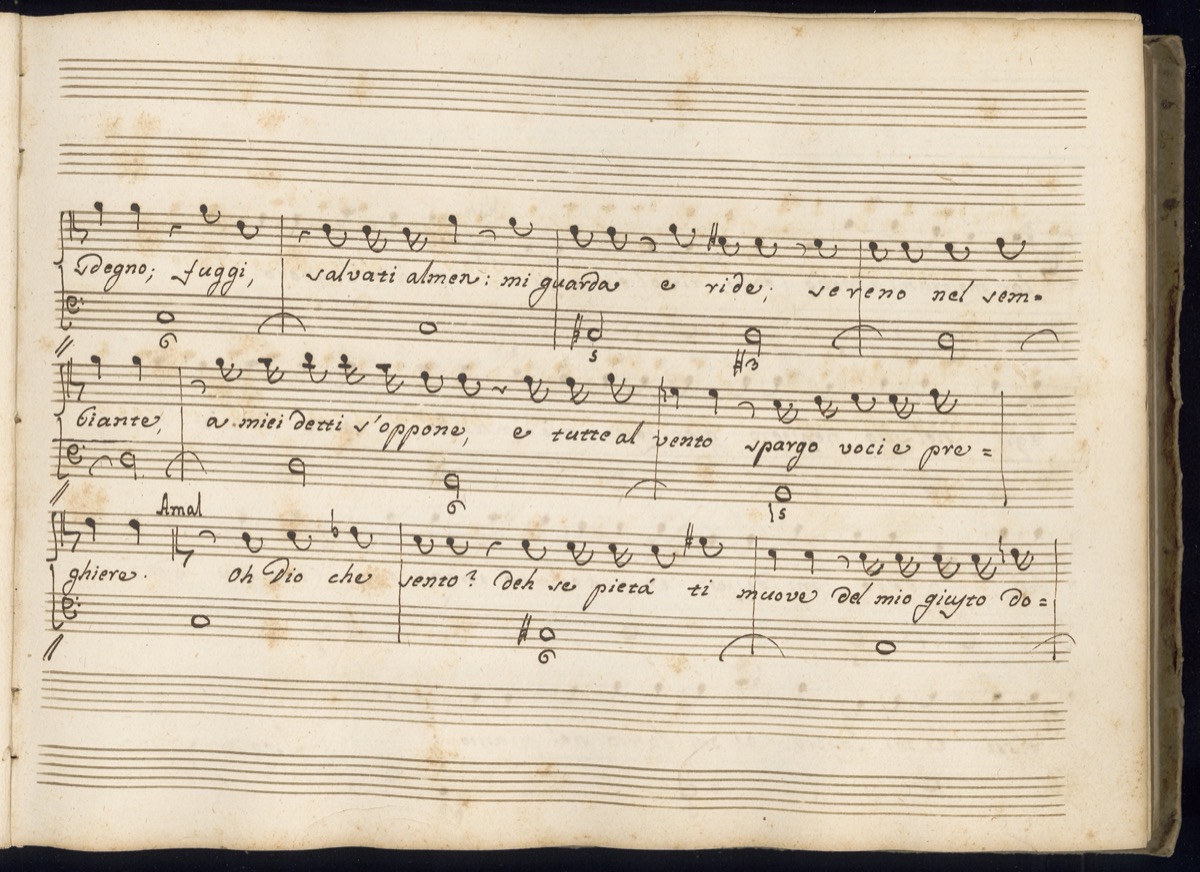 sdegno; fuggi, salvati almen: mi guarda e ride; sereno nel sem=
6 5 #3
biante, a miei detti s'oppone, e tutte al vento spargo voci e pre=
6 5
Amal
ghiere. Oh Dio che sento? deh se pietá ti muove del mio giusto do=
6